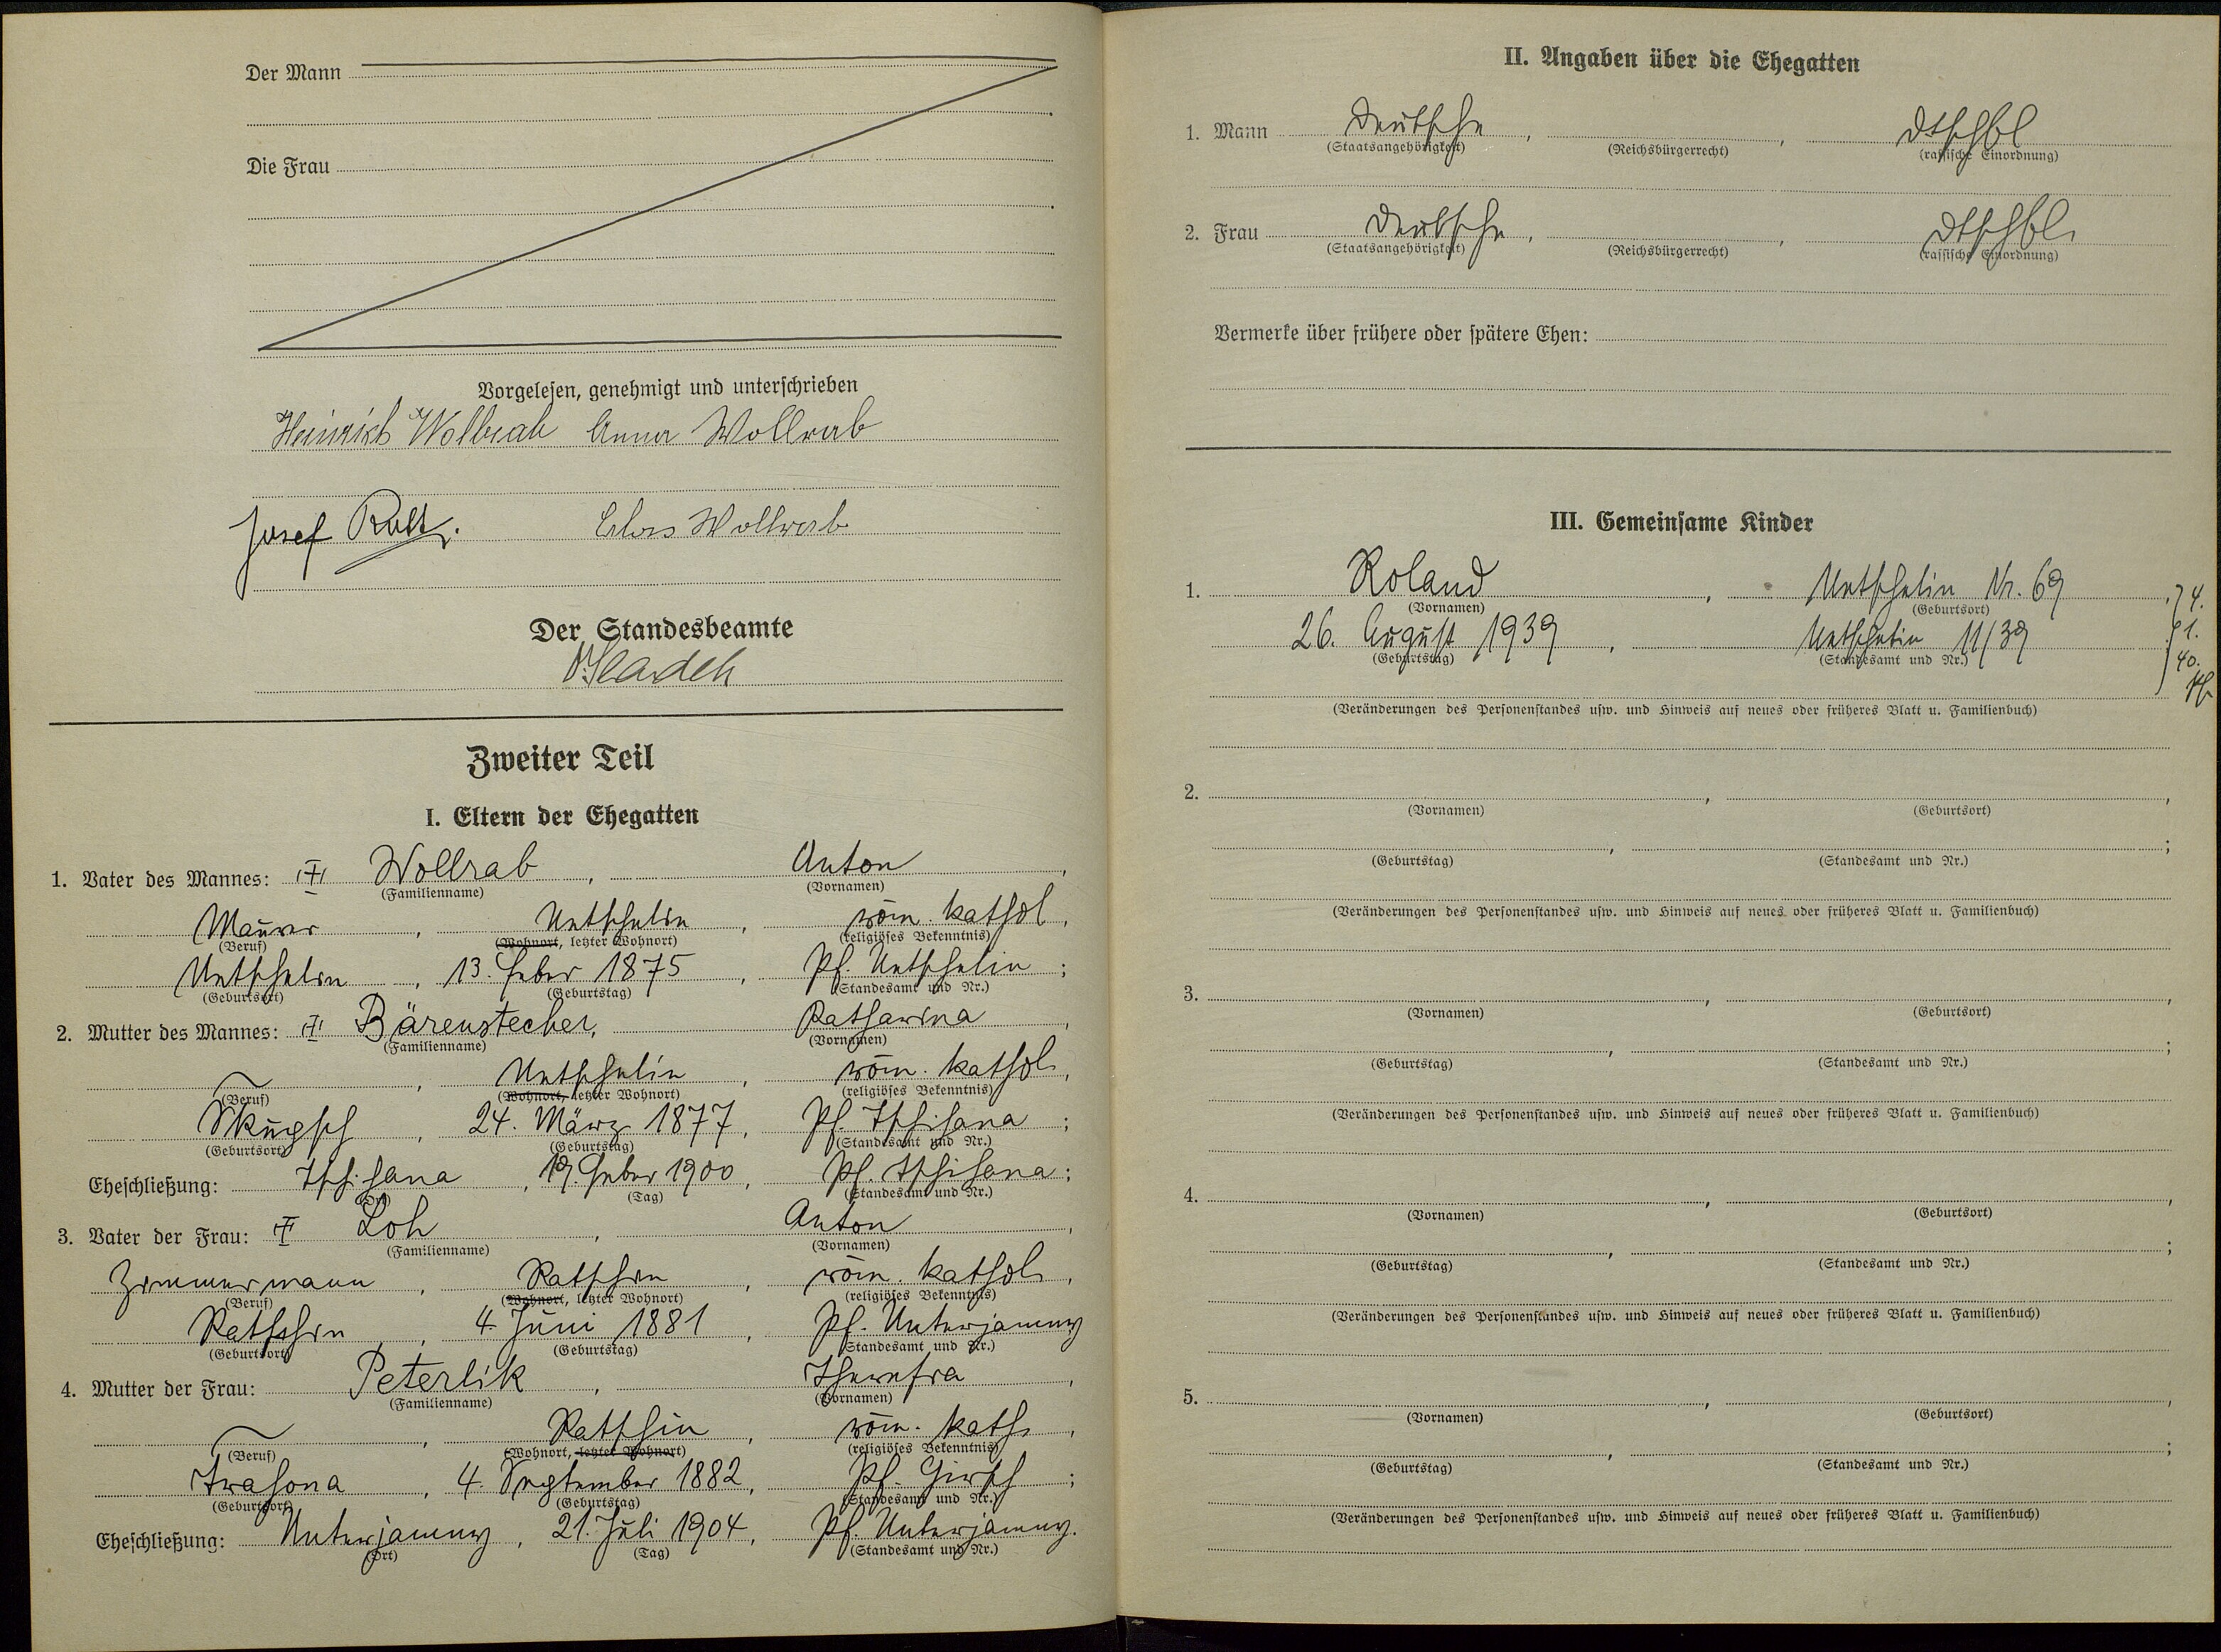 Der Mann
Die Frau
Vorgelesen, genehmigt und unterschrieben
Heinrich Wollrab Anna Wollrab
Josef Wollrab
Der Standesbeamte
Zweiter Teil
I. Eltern der Ehegatten
1. Vater des Mannes: Wollrab, Anton,
(Familienname) (Vornamen)
Maurer, Netschetin, röm. kathol,
(Beruf) (Wohnort, letzter Wohnort) (religiöses Bekenntnis)
Netschetin, 13. Feber 1875, Pf. Netschetin;
(Geburtsort) (Geburtstag) (Standesamt und Nr.)
2. Mutter des Mannes: Bärenstecher, Katharina,
(Familienname) (Vornamen)
Netschetin, röm. kathol.,
(Beruf) (Wohnort, letzter Wohnort) (religiöses Bekenntnis)
24. März 1877, Pf. Tschihana;
(Geburtsort) (Geburtstag) (Standesamt und Nr.)
Eheschließung: Tschihana, 19. Feber 1900, Pf. Tschihana;
(Ort) (Tag) (Standesamt und Nr.)
3. Vater der Frau: Loh, Anton,
(Familienname) (Vornamen)
Zimmermann, Ratschin, röm. kathol.,
(Beruf) (Wohnort, letzter Wohnort) (religiöses Bekenntnis)
Ratschin, 4. Juni 1881, Pf. Unterjamny
(Geburtsort) (Geburtstag) (Standesamt und Nr.)
4. Mutter der Frau: Peterlik, Theresia,
(Familienname) (Vornamen)
Ratschin, röm. kath.,
(Beruf) (Wohnort, letzter Wohnort) (religiöses Bekenntnis)
Trahona, 4. September 1882, Pf. Girsch;
(Geburtsort) (Geburtstag) (Standesamt und Nr.)
Eheschließung: Unterjamny, 21. Juli 1904, Pf. Unterjamny.
(Ort) (Tag) (Standesamt und Nr.)
II. Angaben über die Ehegatten
1. Mann Deutsche, , dtschbl
(Staatsangehörigkeit) (Reichsbürgerrecht) (rassische Einordnung)
2. Frau Deutsche, , dtschbl.
(Staatsangehörigkeit) (Reichsbürgerrecht) (rassische Einordnung)
Vermerke über frühere oder spätere Ehen:
III. Gemeinsame Kinder
1. Roland, Netschetin Nr. 69, 4.
(Vornamen) (Geburtsort)
26. August 1939, Netschetin 11/39; 1.
(Geburtstag) (Standesamt und Nr.) 40.
(Veränderungen des Personenstandes usw. und Hinweis auf neues oder früheres Blatt u. Familienbuch)
2. , ,
(Vornamen) (Geburtsort)
, ;
(Geburtstag) (Standesamt und Nr.)
(Veränderungen des Personenstandes usw. und Hinweis auf neues oder früheres Blatt u. Familienbuch)
3. , ,
(Vornamen) (Geburtsort)
, ;
(Geburtstag) (Standesamt und Nr.)
(Veränderungen des Personenstandes usw. und Hinweis auf neues oder früheres Blatt u. Familienbuch)
4. , ,
(Vornamen) (Geburtsort)
, ;
(Geburtstag) (Standesamt und Nr.)
(Veränderungen des Personenstandes usw. und Hinweis auf neues oder früheres Blatt u. Familienbuch)
5. , ,
(Vornamen) (Geburtsort)
, ;
(Geburtstag) (Standesamt und Nr.)
(Veränderungen des Personenstandes usw. und Hinweis auf neues oder früheres Blatt u. Familienbuch)